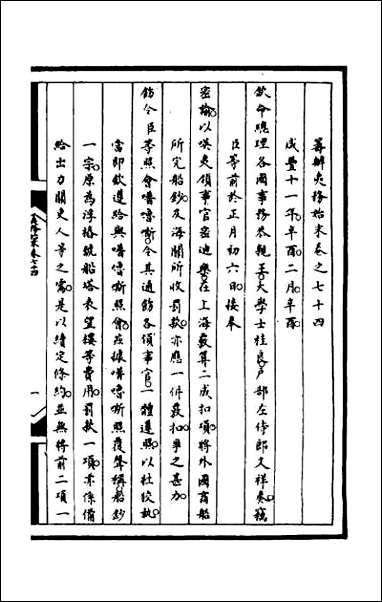 籌辦夷務始末卷之七十四
咸豐十一年辛酉二月辛酉
欽命總理各國事務恭親王大學士桂良戶部左侍郎文祥奏竊
臣等前於正月初六日接奉
密諭以𠸄夷領事官密迪樂在上海藪算二成扣項將外國商船
所完船鈔及海關所收罰款亦應一併藪扣爭之甚力
飭令臣等照會嚕嘶令其通飭各領事官一體遵照以杜狡執
當即欽遵給與嚕嘶照會在據嚕嘶照覆聲稱船鈔
一宗原為浮樁號船塔表望樓等費用罰款一項亦係備
給出力關吏人等之需是以續定條約並無將前二項一